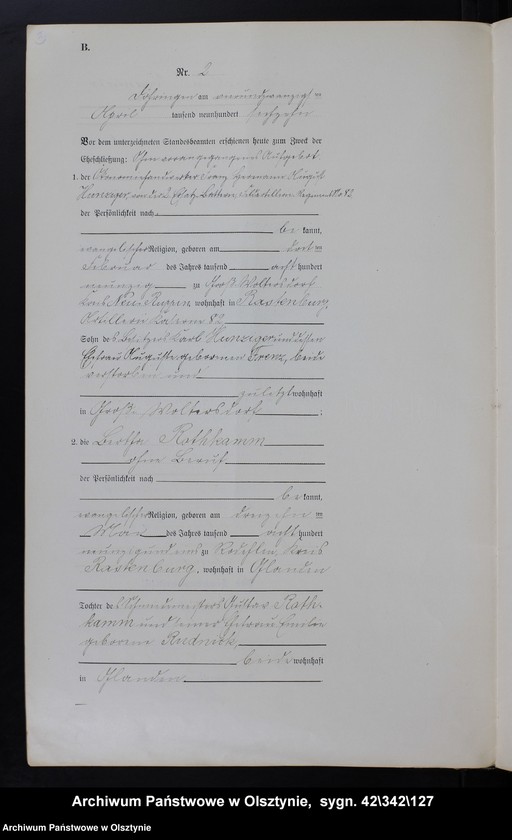 B.
Nr. 2
am neunundzwanzigsten
April tausend neunhundert sechzehn
Vor dem unterzeichneten Standesbeamten erschienen heute zum Zweck der
Eheschließung: Ohne vorangegangenes Aufgebot
1. der Franz Hermann August
Hunziger, von der 2. Ersatz-Batterie, Regiment No 82
der Persönlichkeit nach
be kannt,
evangelischer Religion, geboren am
Februar des Jahres tausend acht hundert
neunzig zu Groß Woltersdorf
Kreis wohnhaft in Rastenburg,
Artillerie Kaserne 82
Sohn des Besitzers Karl Hunziger und dessen
Ehefrau Auguste geborenen beide
verstorben und
zuletzt wohnhaft
in Große Woltersdorf ;
2. die Bertha Rothkamm
ohne Beruf
der Persönlichkeit nach
be kannt,
evangelischer Religion, geboren am dreizehn ten
Mai des Jahres tausend acht hundert
neunzig und eins zu Kreis
Rastenburg, wohnhaft in Glanden
Tochter de s Gustav Roth-
kamm und seiner Ehefrau Emilie
geborene Rudnick,
beide wohnhaft
in Glanden
Archiwum Państwowe w Olsztynie, sygn. 42\342\127
Archiwum Państwowe w Olsztynie